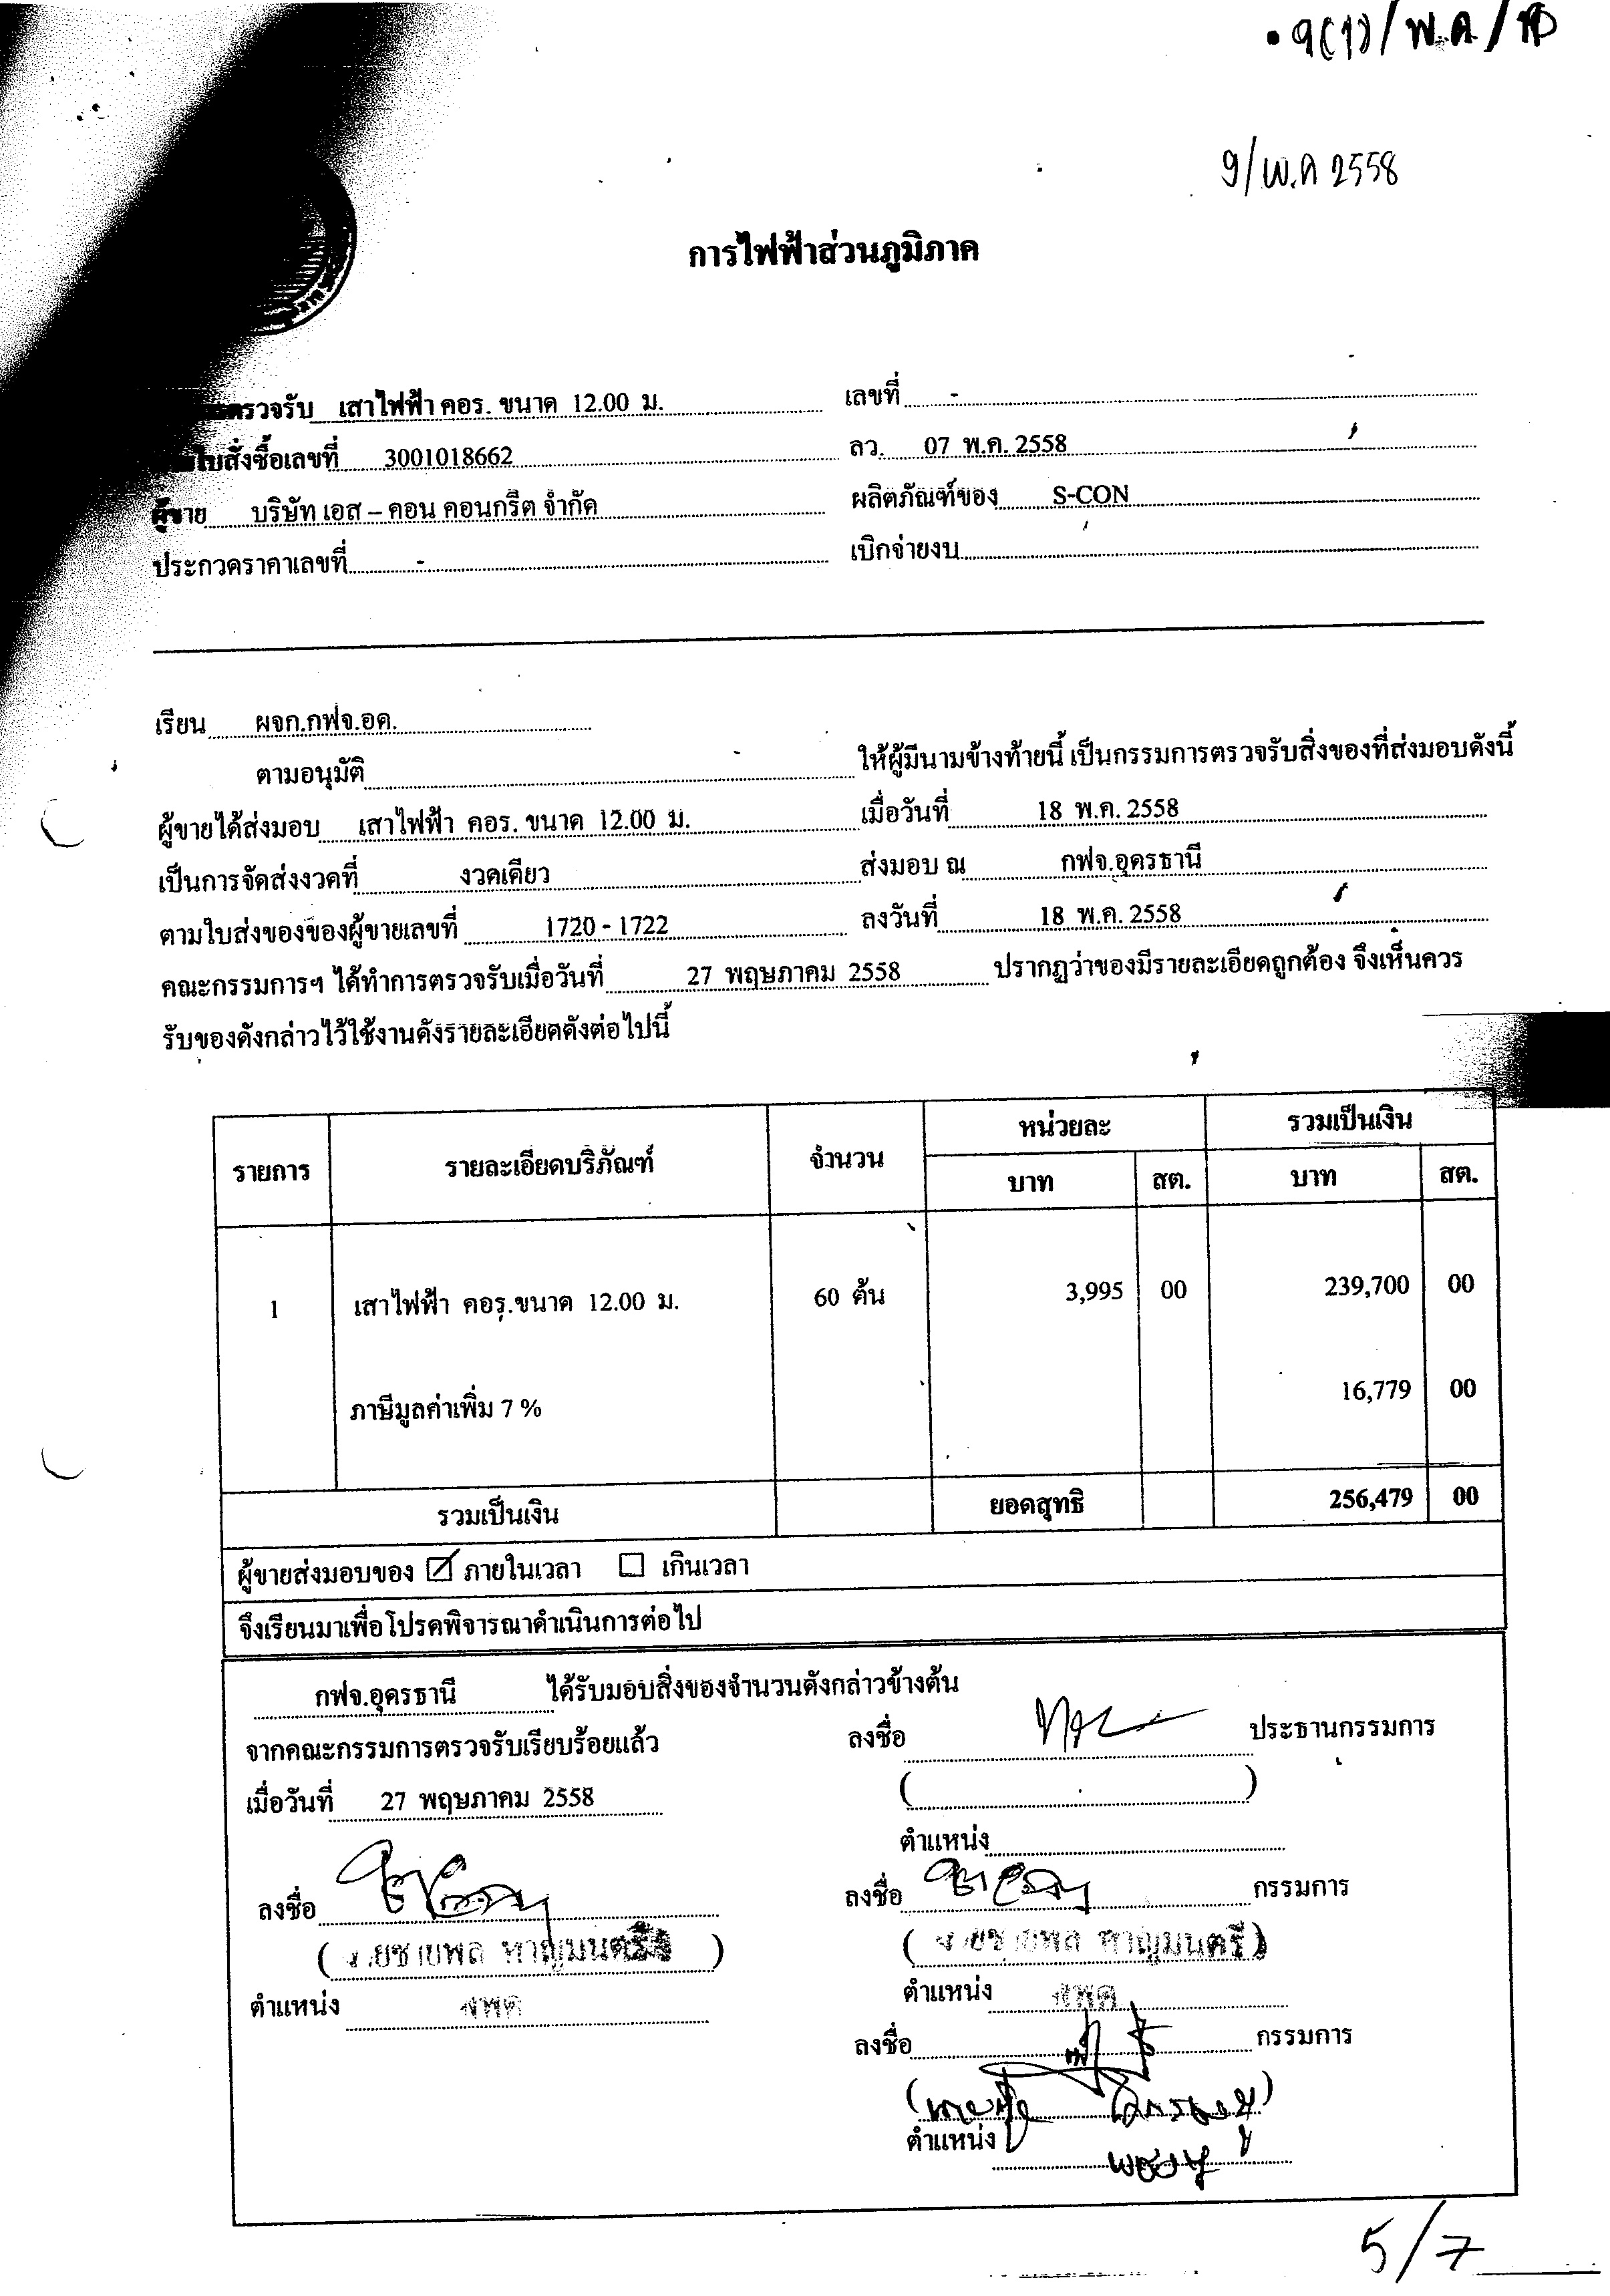 9/พ.ค 2558
การไฟฟ้าส่วนภูมิภาค
ตรวจรับ เสาไฟฟ้า คอร. ขนาด 12.00 ม. เลขที่ -
ใบสั่งซื้อเลขที่ 3001018662 ลว. 07 พ.ค. 2558
ผู้ขาย บริษัท เอส – คอน คอนกรีต จำกัด ผลิตภัณฑ์ของ S-CON
ประกวดราคาเลขที่ - เบิกจ่ายงบ
เรียน ผจก.กฟจ.อด.
ตามอนุมัติ - ให้ผู้มีนามข้างท้ายนี้ เป็นกรรมการตรวจรับสิ่งของที่ส่งมอบดังนี้
ผู้ขายได้ส่งมอบ เสาไฟฟ้า คอร. ขนาด 12.00 ม. เมื่อวันที่ 18 พ.ค. 2558
เป็นการจัดส่งงวดที่ งวดเดียว ส่งมอบ ณ กฟจ.อุดรธานี
ตามใบส่งของของผู้ขายเลขที่ 1720 - 1722 ลงวันที่ 18 พ.ค. 2558
คณะกรรมการฯ ได้ทำการตรวจรับเมื่อวันที่ 27 พฤษภาคม 2558 ปรากฏว่าของมีรายละเอียดถูกต้อง จึงเห็นควร
รับของดังกล่าวไว้ใช้งานดังรายละเอียดดังต่อไปนี้
รายการ รายละเอียดบริภัณฑ์ จำนวน หน่วยละ รวมเป็นเงิน
บาท สต. บาท สต.
1 เสาไฟฟ้า คอร.ขนาด 12.00 ม. 60 ต้น 3,995 00 239,700 00
ภาษีมูลค่าเพิ่ม 7 % 16,779 00
รวมเป็นเงิน ยอดสุทธิ 256,479 00
ผู้ขายส่งมอบของ ☑ ภายในเวลา ☐ เกินเวลา
จึงเรียนมาเพื่อโปรดพิจารณาดำเนินการต่อไป
กฟจ.อุดรธานี ได้รับมอบสิ่งของจำนวนดังกล่าวข้างต้น
จากคณะกรรมการตรวจรับเรียบร้อยแล้ว ลงชื่อ ประธานกรรมการ
เมื่อวันที่ 27 พฤษภาคม 2558 ( )
ตำแหน่ง
ลงชื่อ ลงชื่อ กรรมการ
(นายชายพล หาญมนตรี) (นายชายพล หาญมนตรี)
ตำแหน่ง ตำแหน่ง
ลงชื่อ กรรมการ
ตำแหน่ง
5/7